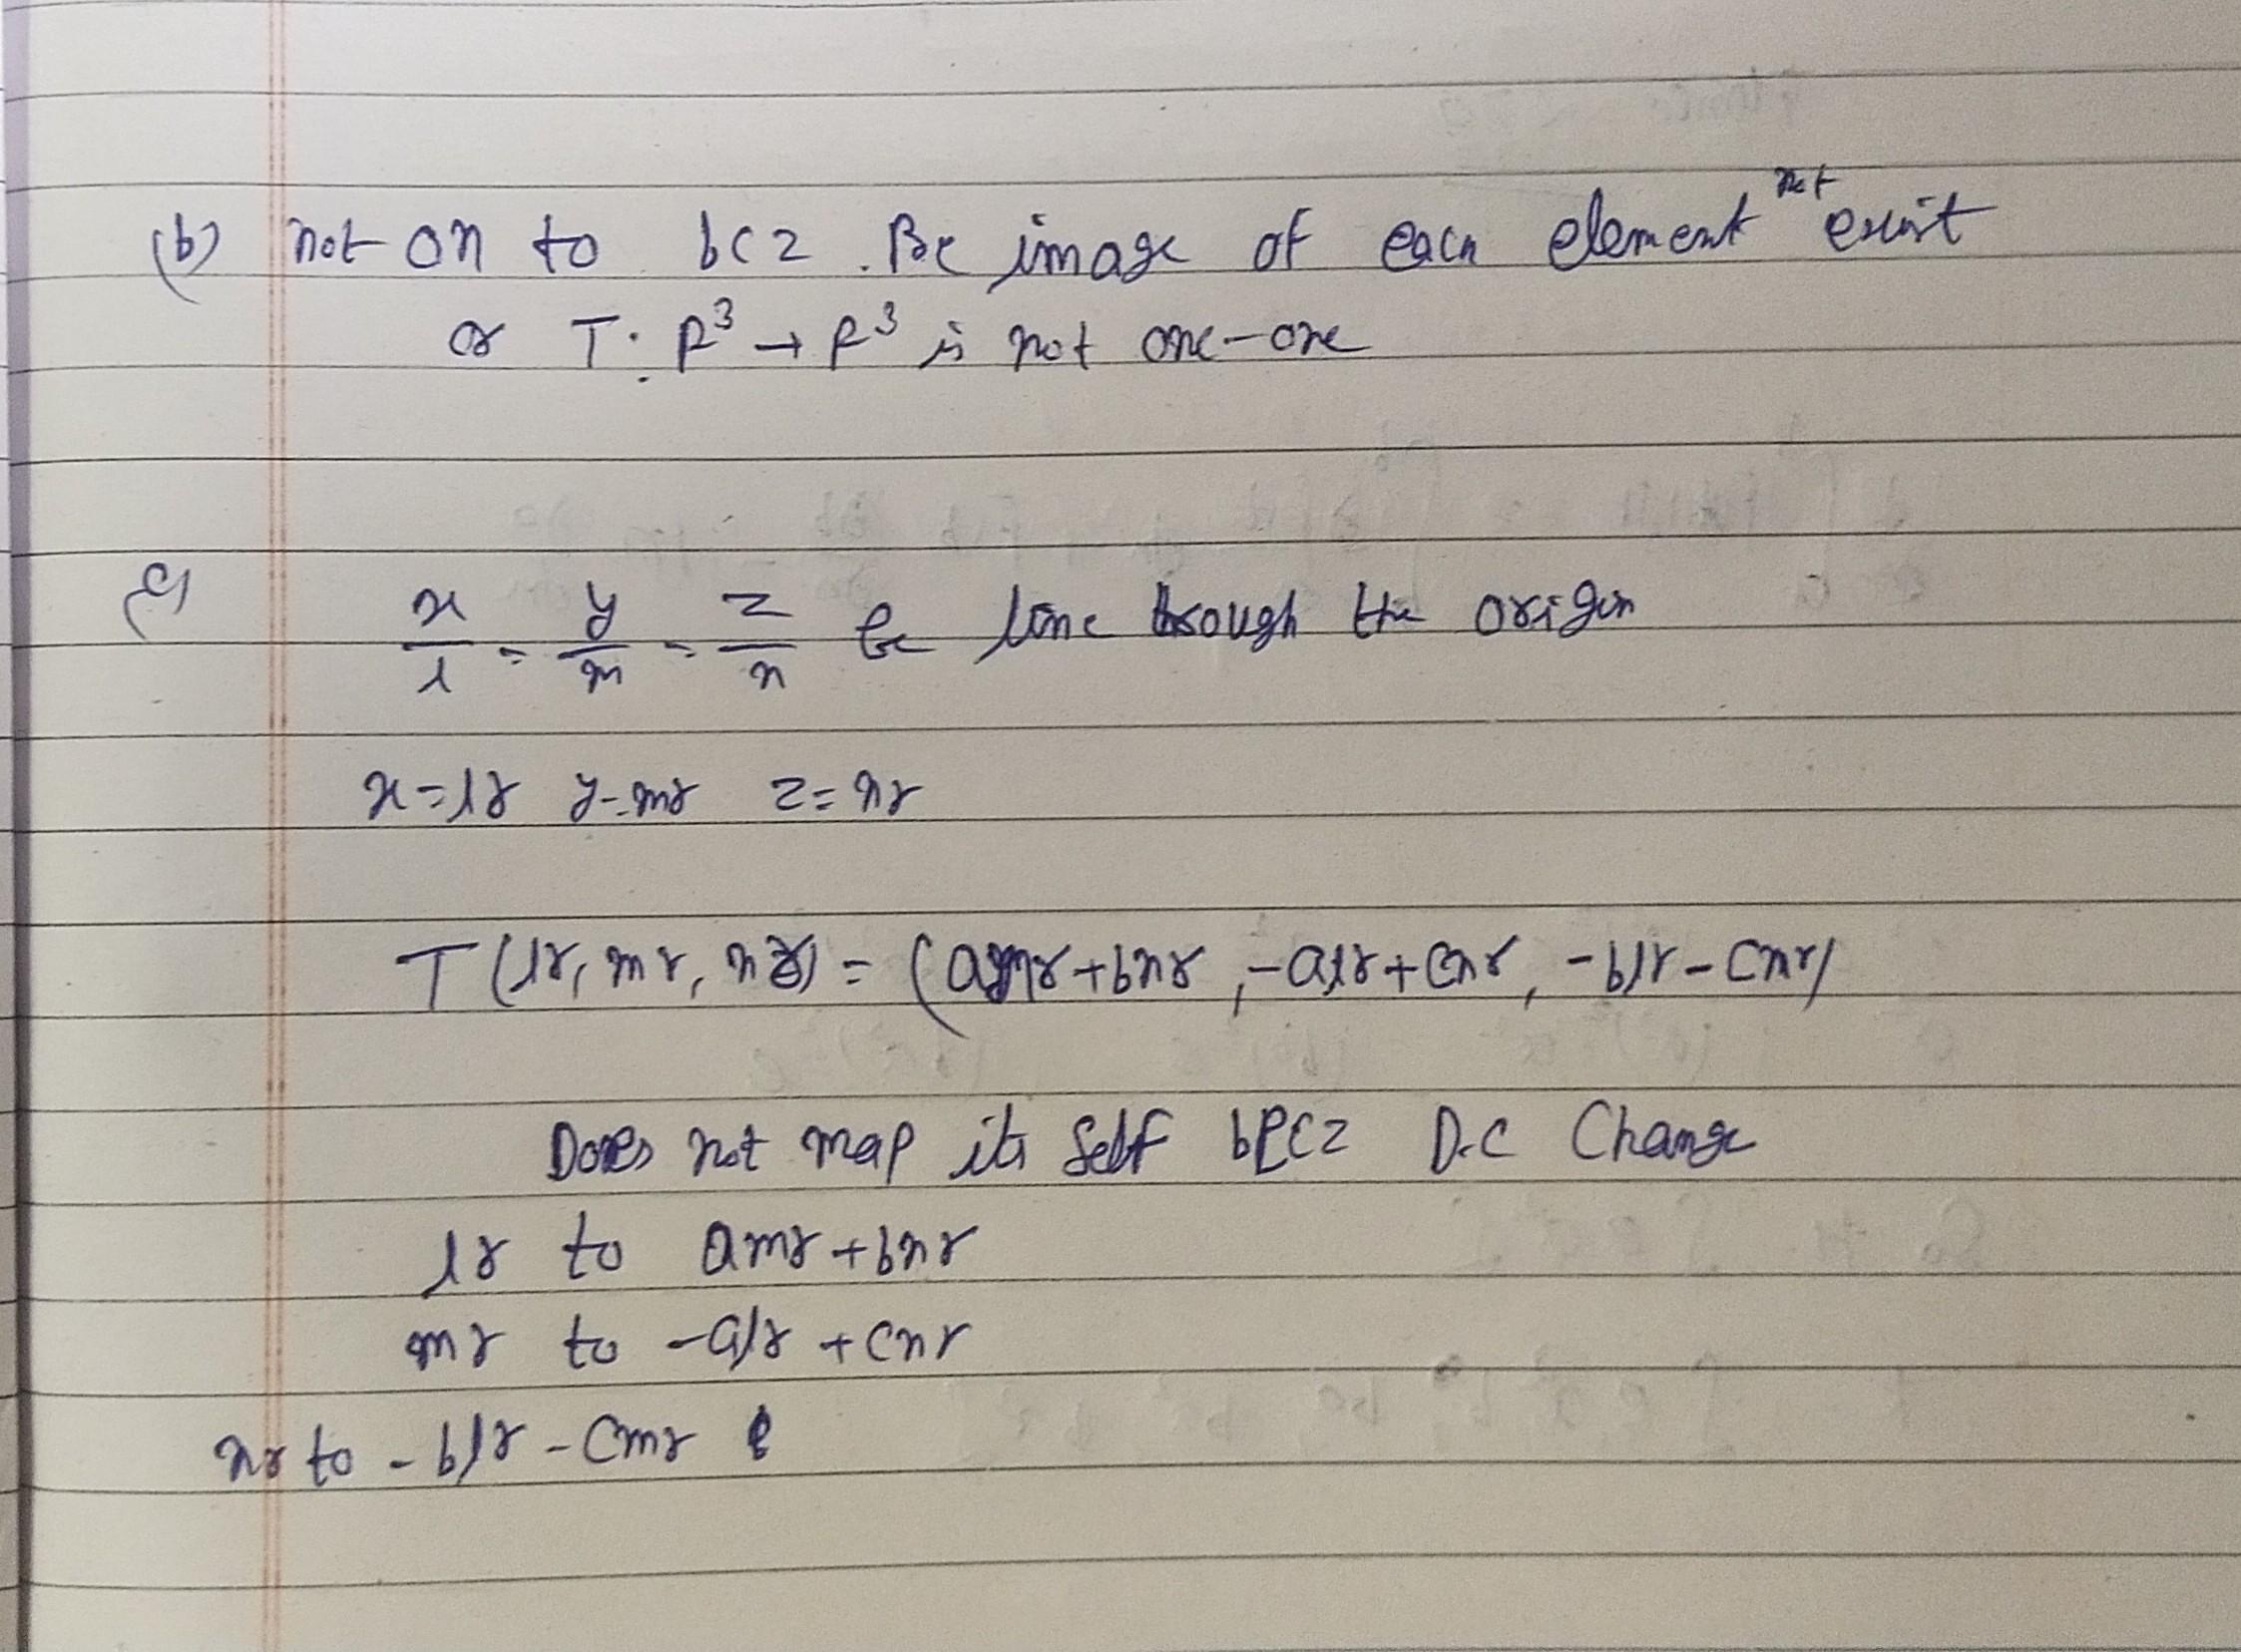 (b) not on to bcz . Be image of each element not exist
or T: R³ → R³ is not one-one
c) x/l = y/m = z/n be line through the origin
x = lr y = mr z = nr
T(lr, mr, nr) = (amr + bnr, -alr + cnr, -blr - cmr)
Does not map its self bcz D.C Change
lr to amr + bnr
mr to -alr + cnr
nr to - blr - cmr